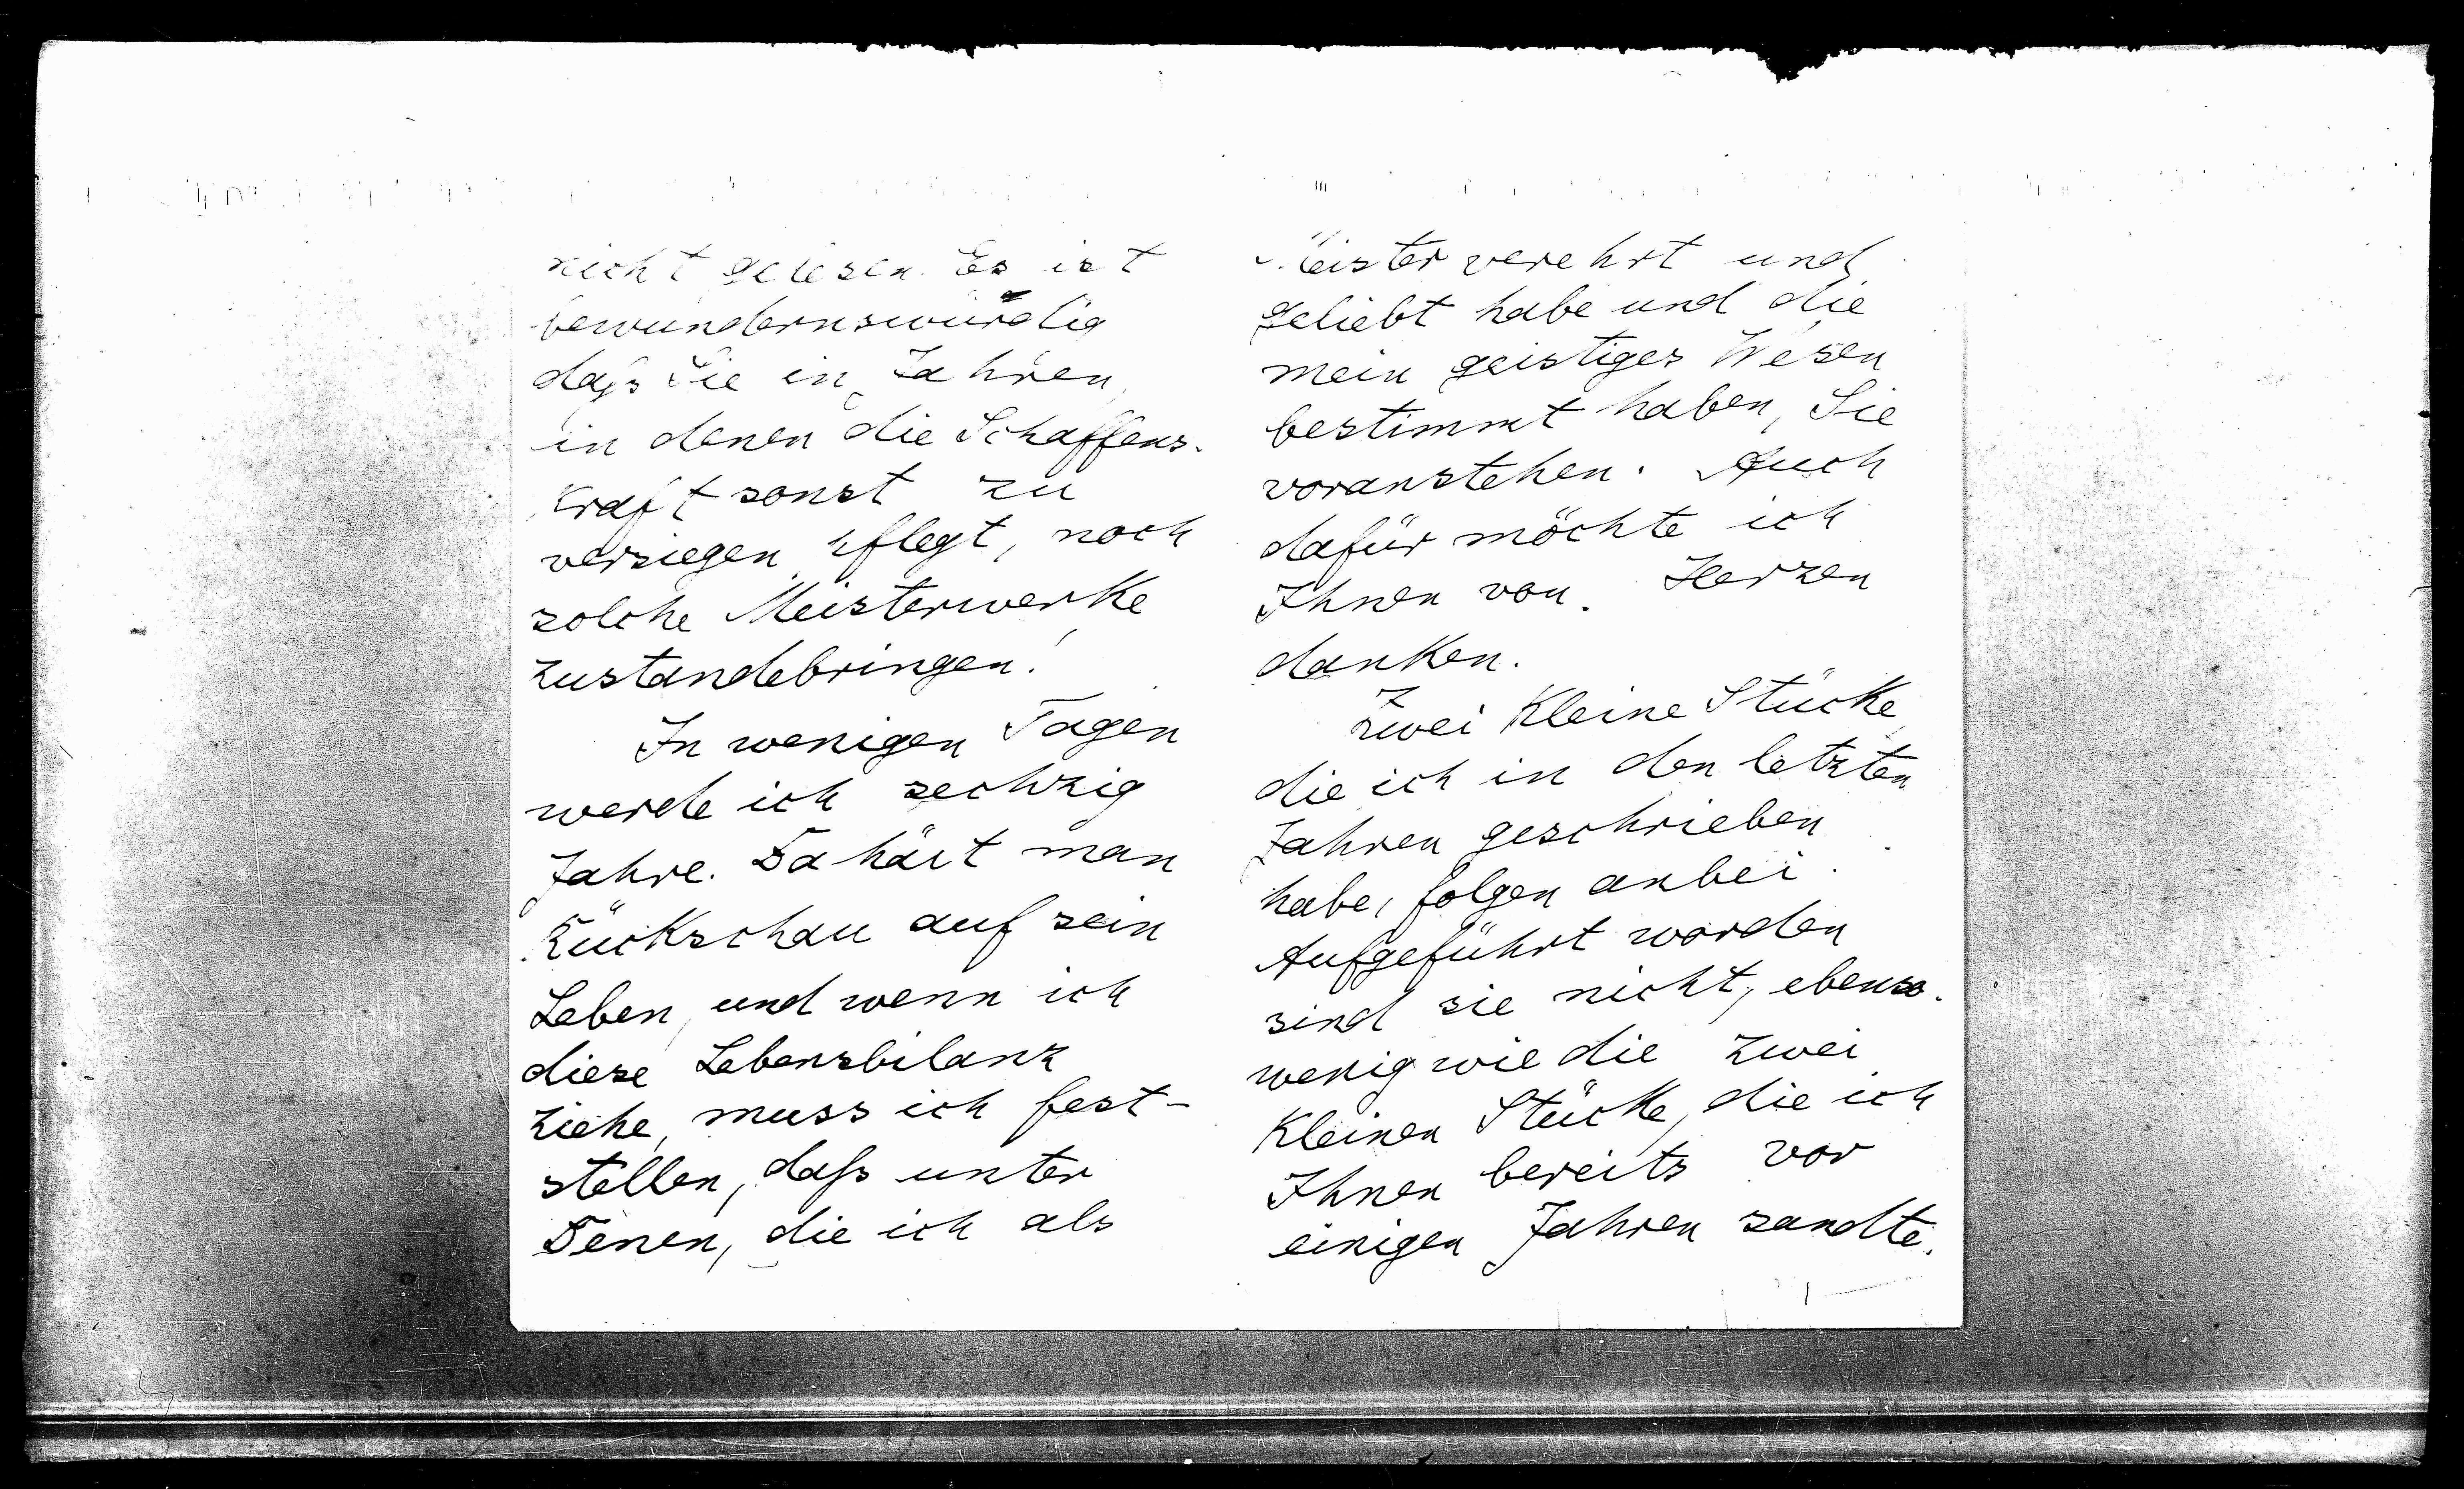 nicht gelesen. Es ist
bewundernswürdig
daſs Sie in Jahren,
in denen die Schaffens-
kraft sonst zu
versiegen pflegt, noch
solche Meisterwerke
zustandebringen!
In wenigen Tagen
werde ich sechzig
Jahre. Da hält man
Rückschau auf sein
Leben, und wenn ich
diese Lebensbilanz
ziehe, muss ich fest-
stellen, daſs unter
Denen, die ich als
Meister verehrt und
geliebt habe und die
mein geistiges Wesen
bestimmt haben, Sie
voranstehen. Auch
dafür möchte ich
Ihnen von Herzen
danken.
Zwei kleine Stücke,
die ich in den letzten
Jahren geschrieben
habe, folgen anbei.
Aufgeführt worden
sind sie nicht, ebenso-
wenig wie die zwei
kleinen Stücke, die ich
Ihnen bereits vor
einigen Jahren sandte.